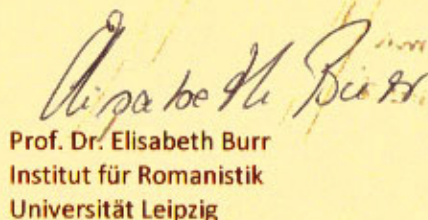 Elisabeth Burr
Prof. Dr. Elisabeth Burr
Institut für Romanistik
Universität Leipzig